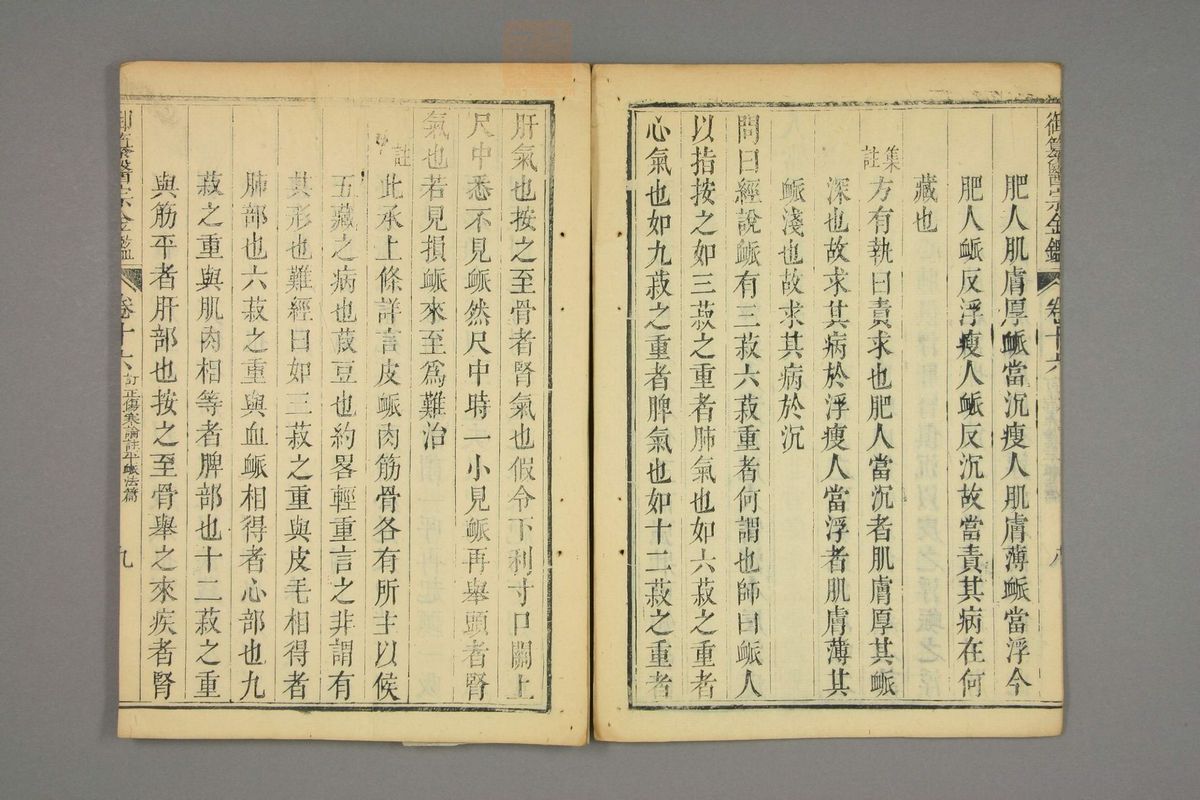 御纂醫宗金鑑 卷十六 八
肥人肌膚厚䘑當沉瘦人肌膚薄䘑當浮今
肥人䘑反浮瘦人䘑反沉故當責其病在何
藏也
集註方有執曰責求也肥人當沉者肌膚厚其䘑
深也故求其病於浮瘦人當浮者肌膚薄其
䘑淺也故求其病於沉
問曰經說䘑有三菽六菽重者何謂也師曰䘑人
以指按之如三菽之重者肺氣也如六菽之重者
心氣也如九菽之重者脾氣也如十二菽之重者
肝氣也按之至骨者腎氣也假令下利寸口關上
尺中悉不見䘑然尺中時一小見䘑再舉頭者腎
氣也若見損䘑來至爲難治
註此承上條詳言皮䘑肉筋骨各有所主以候
五藏之病也菽豆也約畧輕重言之非謂有
其形也難經曰如三菽之重與皮毛相得者
肺部也六菽之重與血䘑相得者心部也九
菽之重與肌肉相等者脾部也十二菽之重
與筋平者肝部也按之至骨舉之來疾者腎
御纂醫宗金鑑 卷十六 訂正傷寒論註平䘑法篇 九